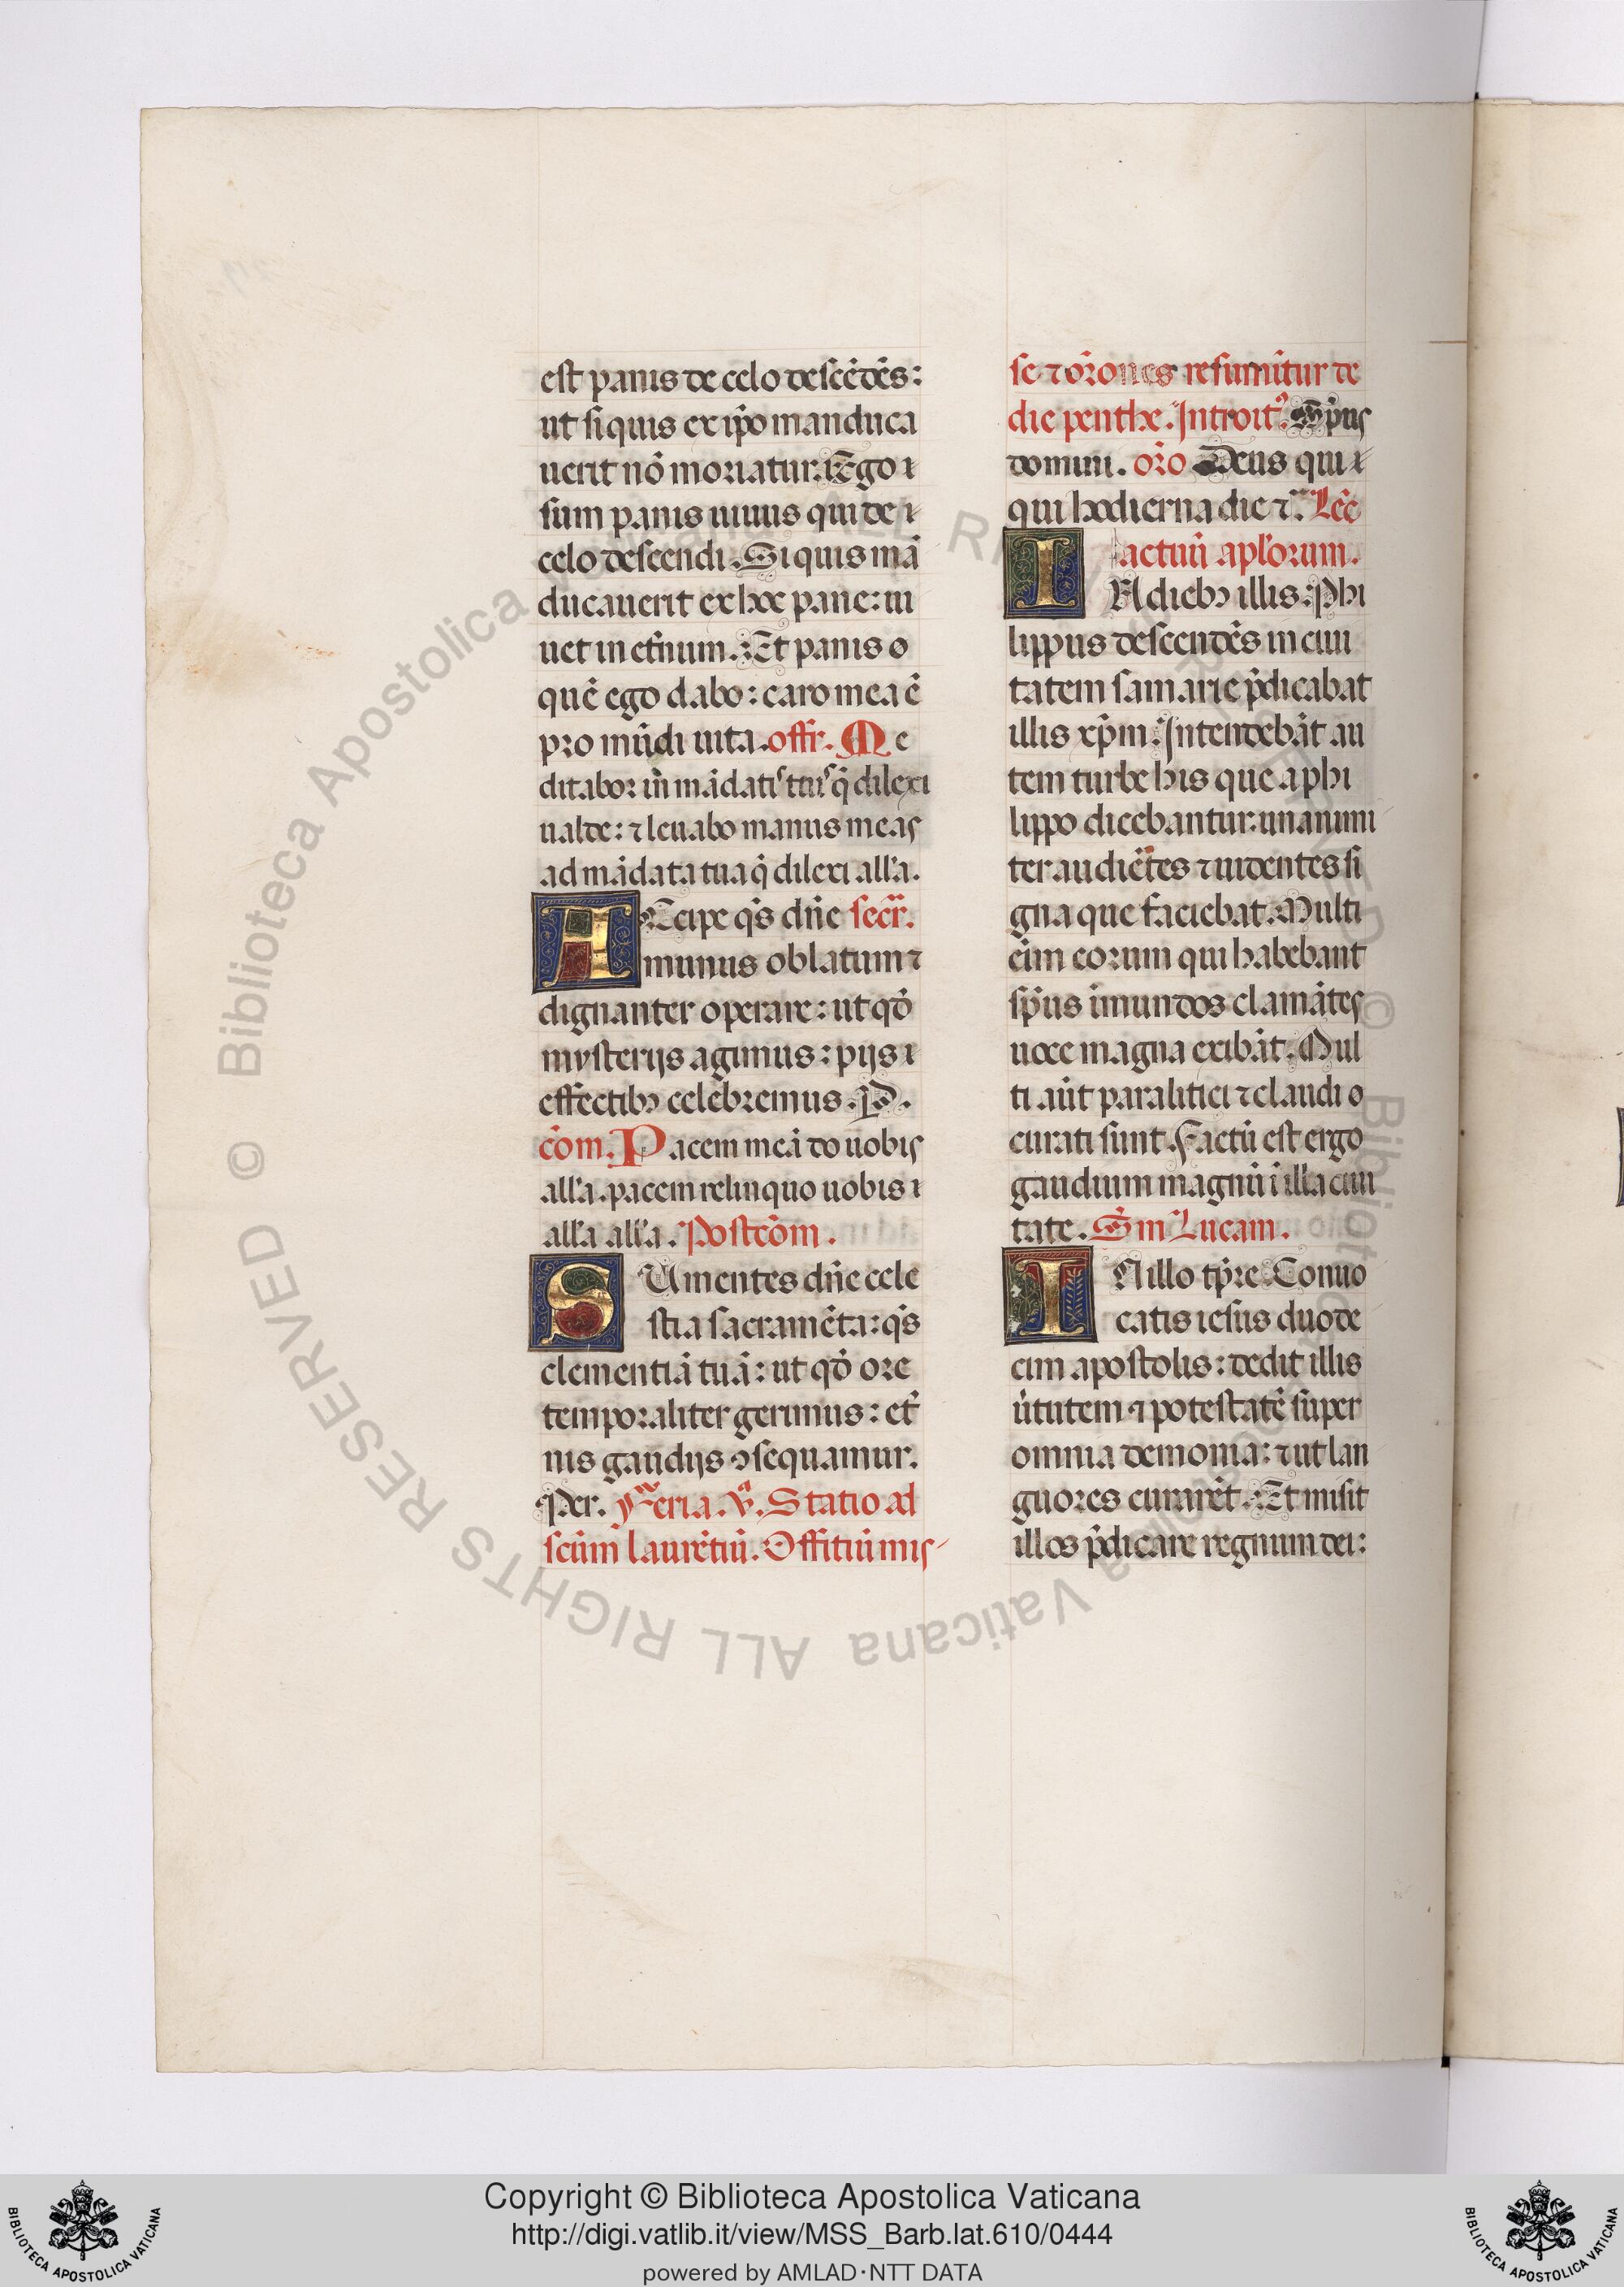 est panis de celo descēdēs:
ut si quis ex ip̄o manduca
uerit nō moriatur. Ego ı
sum panis uiuus qui de ı
celo descendi. Si quis mā
ducauerit ex hoc pane: ui
uet in et̄num. Et panis o
quē ego dabo: caro mea ē
pro mūdi uita. offr̄. Me
ditabor in mādatis tuis q̄ dilexi
ualde: ⁊ leuabo manus meas
ad mādata tua q̄ dilexi all'a.
ACcipe q̄s dn̄e secr̄.
munus oblatum ⁊
dignanter operare: ut qd̄
mysterijs agimus: pijs ı
effectibꝫ celebremus. P.
cōm. Pacem meā do uobis
all'a. pacem relinquo uobis ı
all'a all'a. Postcōm.
SUmentes dn̄e cele
stia sacramēta: q̄s
clementiā tuā: ut qd̄ ore
temporaliter gerimus: et̄
nis gaudijs ꝯsequamur.
Per. Feria. v̄. Statio ad
scūm laurētiū. Offitiū mis-
se ⁊ or̄ones resumūtur de
die penthe. Introitꝰ. Sp̄us
domini. or̄o Deus qui ı
qui hodierna die ⁊. Lec̄
actuū apl'orum.
IN diebꝫ illis: Phi
lippus descendēs in ciui
tatem samarie p̄dicabat
illis xp̄m. Intendebāt au
tem turbe his que a phi
lippo dicebantur: unanimi
ter audiētes ⁊ uidentes si
gna que faciebat. Multi
eīm eorum qui habebant
sp̄us īmundos clamātes
uoce magna exibāt. Mul
ti aūt paralitici ⁊ claudi o
curati sunt. Factū est ergo
gaudium magnū ī illa ciui
tate. S̄m Lucam.
IN illo tp̄re. Conuo
catis iesus duode
cim apostolis: dedit illis
u̇tutem ⁊ potestatē super
omnia demonia: ⁊ ut lan
guores curarēt. Et misit
illos p̄dicare regnum dei:
© Biblioteca Apostolica Vaticana ALL RIGHTS RESERVED
Copyright © Biblioteca Apostolica Vaticana
http://digi.vatlib.it/view/MSS_Barb.lat.610/0444
powered by AMLAD·NTT DATA
BIBLIOTECA APOSTOLICA VATICANA
BIBLIOTECA APOSTOLICA VATICANA